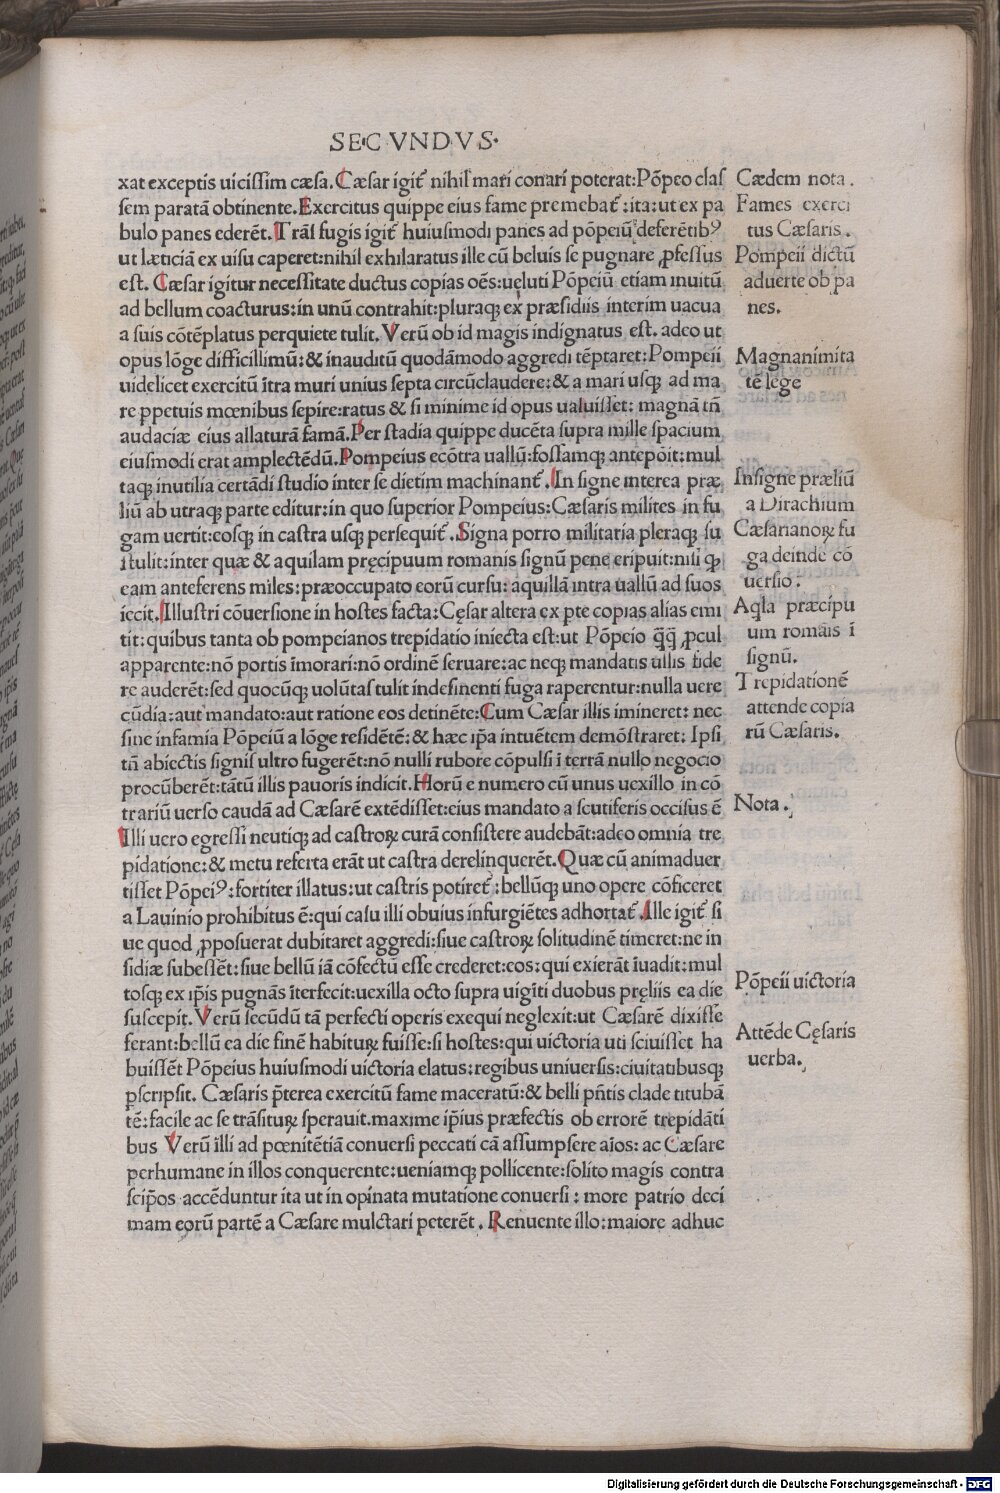 SE·C VNDVS·
xat exceptis uicissim cæsa. Cæsar igit᷑ nihil mari conari poterat: Põpeo clas
sem paratã obtinente. Exercitus quippe eius fame premebat᷑: ita: ut ex pa
bulo panes ederẽt. Trãsfugis igit᷑ huiusmodi panes ad põpeiũ deferẽtibꝰ
ut læticiã ex uisu caperet: nihil exhilaratus ille cũ beluis se pugnare ꝓfessus
est. Cæsar igitur necessitate ductus copias oẽs: ueluti Põpeiũ etiam inuitũ
ad bellum coacturus: in unũ contrahit: pluraqꝫ ex præsidiis interim uacua
a suis cõtẽplatus perquiete tulit. Verũ ob id magis indignatus est. adeo ut
opus lõge difficillimũ: & inauditũ quodãmodo aggredi tẽptaret: Pompeii
uidelicet exercitũ ĩtra muri unius septa circũclaudere: & a mari usqꝫ ad ma
re ꝑpetuis mœnibus sepire: ratus & si minime id opus ualuisset: magnã tñ
audaciæ eius allaturã famã. Per stadia quippe ducẽta supra mille spacium
eiusmodi erat amplectẽdũ. Pompeius ecõtra uallũ: fossamqꝫ antepõit: mul
taqꝫ inutilia certãdi studio inter se dietim machinant᷑. In signe interea præ
liũ ab utraqꝫ parte editur: in quo superior Pompeius: Cæsaris milites in fu
gam uertit: eosqꝫ in castra usqꝫ persequit᷑. Signa porro militaria pleraqꝫ su
stulit: inter quæ & aquilam pręcipuum romanis signũ pene eripuit: nisi qꝫ
eam anteferens miles: præoccupato eorũ cursu: aquillã intra uallũ ad suos
iecit. Illustri cõuersione in hostes facta: Cęsar altera ex pte copias alias emi
tit: quibus tanta ob pompeianos trepidatio iniecta est: ut Põpeio q̃q̃ ꝓcul
apparente: nõ portis ĩmorari: nõ ordinẽ seruare: ac neqꝫ mandatis ullis fide
re auderẽt: sed quocũqꝫ uolũtas tulit indefinenti fuga raperentur: nulla uere
cũdia: aut mandato: aut ratione eos detinẽte: Cum Cæsar illis imineret: nec
sine infamia Põpeiũ a lõge residẽtẽ: & hæc ip̃a intuẽtem demõstraret: Ipsi
tñ abiectis signis ultro fugerẽt: nõ nulli rubore cõpulsi ĩ terrã nullo negocio
procũberẽt: tãtũ illis pauoris indicit. Horũ e numero cũ unus uexillo in cõ
trariũ uerso caudã ad Cæsarẽ extẽdisset: eius mandato a scutiferis occisus ẽ
Illi uero egressi neutiqꝫ ad castroꝝ curã consistere audebãt: adeo omnia tre
pidatione: & metu referta erãt ut castra derelinquerẽt. Quæ cũ animaduer
tisset Põpeiꝰ: fortiter illatus: ut castris potiret᷑: bellũqꝫ uno opere cõficeret
a Lauinio prohibitus ẽ: qui casu illi obuius insurgiẽtes adhortat᷑. Ille igit᷑ si
ue quod ꝓposuerat dubitaret aggredi: siue castroꝝ solitudinẽ timeret: ne in
sidiæ subessẽt: siue bellũ iã cõfectũ esse crederet: eos: qui exierãt ĩuadit: mul
tosqꝫ ex ip̃is pugnãs ĩterfecit: uexilla octo supra uigĩti duobus pręliis ea die
suscepit. Verũ secũdũ tã perfecti operis exequi neglexit: ut Cæsarẽ dixisse
ferant: bellũ ea die finẽ habituꝝ fuisse: si hostes: qui uictoria uti sciuisset ha
buissẽt Põpeius huiusmodi uictoria elatus: regibus uniuersis: ciuitatibusqꝫ
ꝑscripsit. Cæsaris p̃terea exercitũ fame maceratũ: & belli pñtis clade titubã
tẽ: facile ac se trãsituꝝ sperauit. maxime ip̃ius præfectis ob errorẽ trepidãti
bus Verũ illi ad pœnitẽtiã conuersi peccati cã assumpsere aĩos: ac Cæsare
perhumane in illos conquerente: ueniamqꝫ pollicente: solito magis contra
seip̃os accẽduntur ita ut in opinata mutatione conuersi: more patrio deci
mam eorũ partẽ a Cæsare mulctari peterẽt. Renuente illo: maiore adhuc
Cædem nota.
Fames exerci
tus Cæsaris.
Pompeii dictũ
aduerte ob pa
nes.
Magnanimita
tẽ lege
Insigne præliũ
a Dirachium
Cæsarianoꝝ fu
ga deinde cõ
uersio.
Aqla præcipu
um romãis ĩ
signũ.
Trepidationẽ
attende copia
rũ Cæsaris.
Nota.
Põpeii uictoria
Attẽde Cęsaris
uerba.
Digitalisierung gefördert durch die Deutsche Forschungsgemeinschaft - DFG